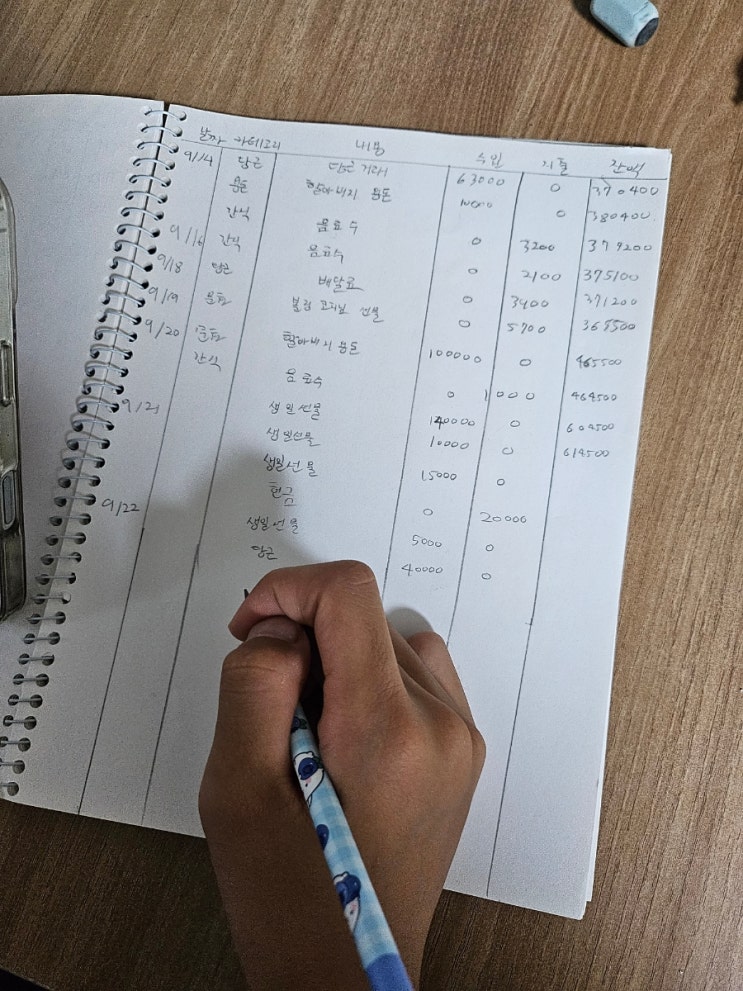 날짜 카테고리 내용 수입 지출 잔액
9/14 당근 당근거래 63000 0 370400
용돈 할아버지 용돈 10000 0 380400
간식 음료수 0 3200 377200
9/16 간식 음료수 0 2100 375100
9/18 당근 배달료 0 3400 371200
9/19 선물 0 5700 365500
9/20 용돈 할아버지 용돈 100000 0 465500
간식 음료수 0 1000 464500
9/21 생일선물 140000 0 604500
생일선물 10000 0 614500
생일선물 15000 0
현금 0 20000
9/22 생일선물 5000 0
당근 40000 0